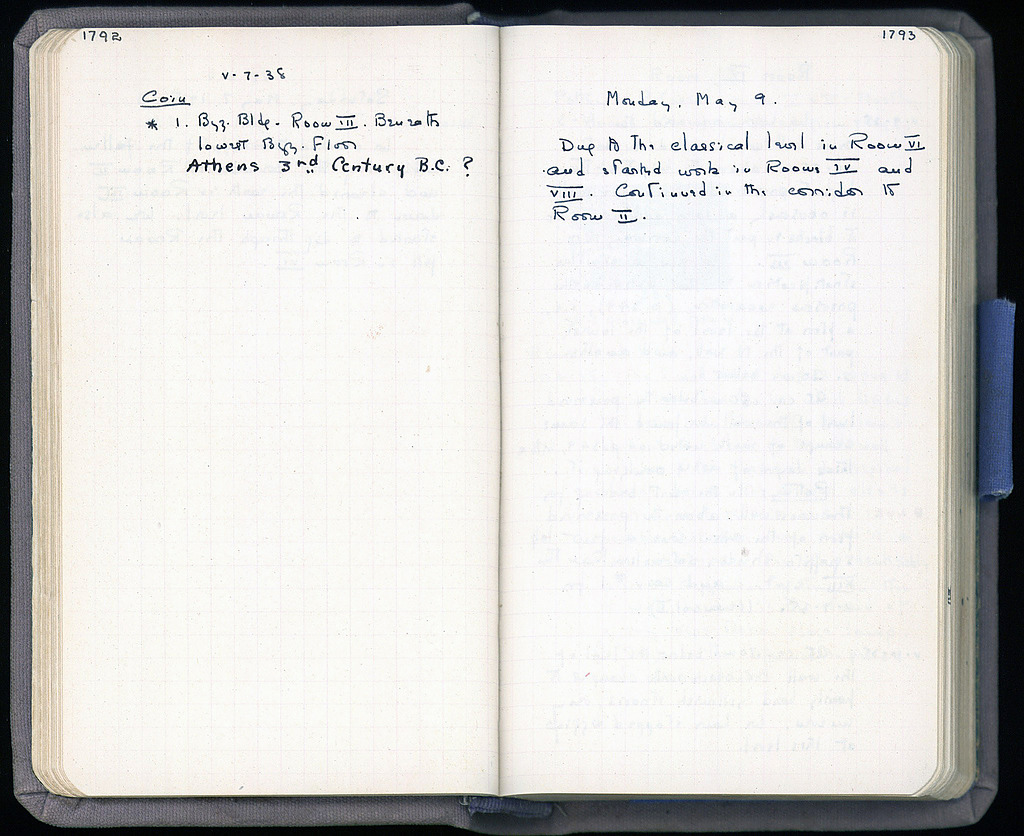 1792
V-7-38
Coin
* 1. Byz. Bldg. Room VII. Beneath
lowest Byz. Floor
Athens 3rd Century B.C. ?
1793
Monday, May 9.
Dug to the classical level in Room VI
and started work in Rooms IV and
VIII. Continued in the corridor to
Room II.